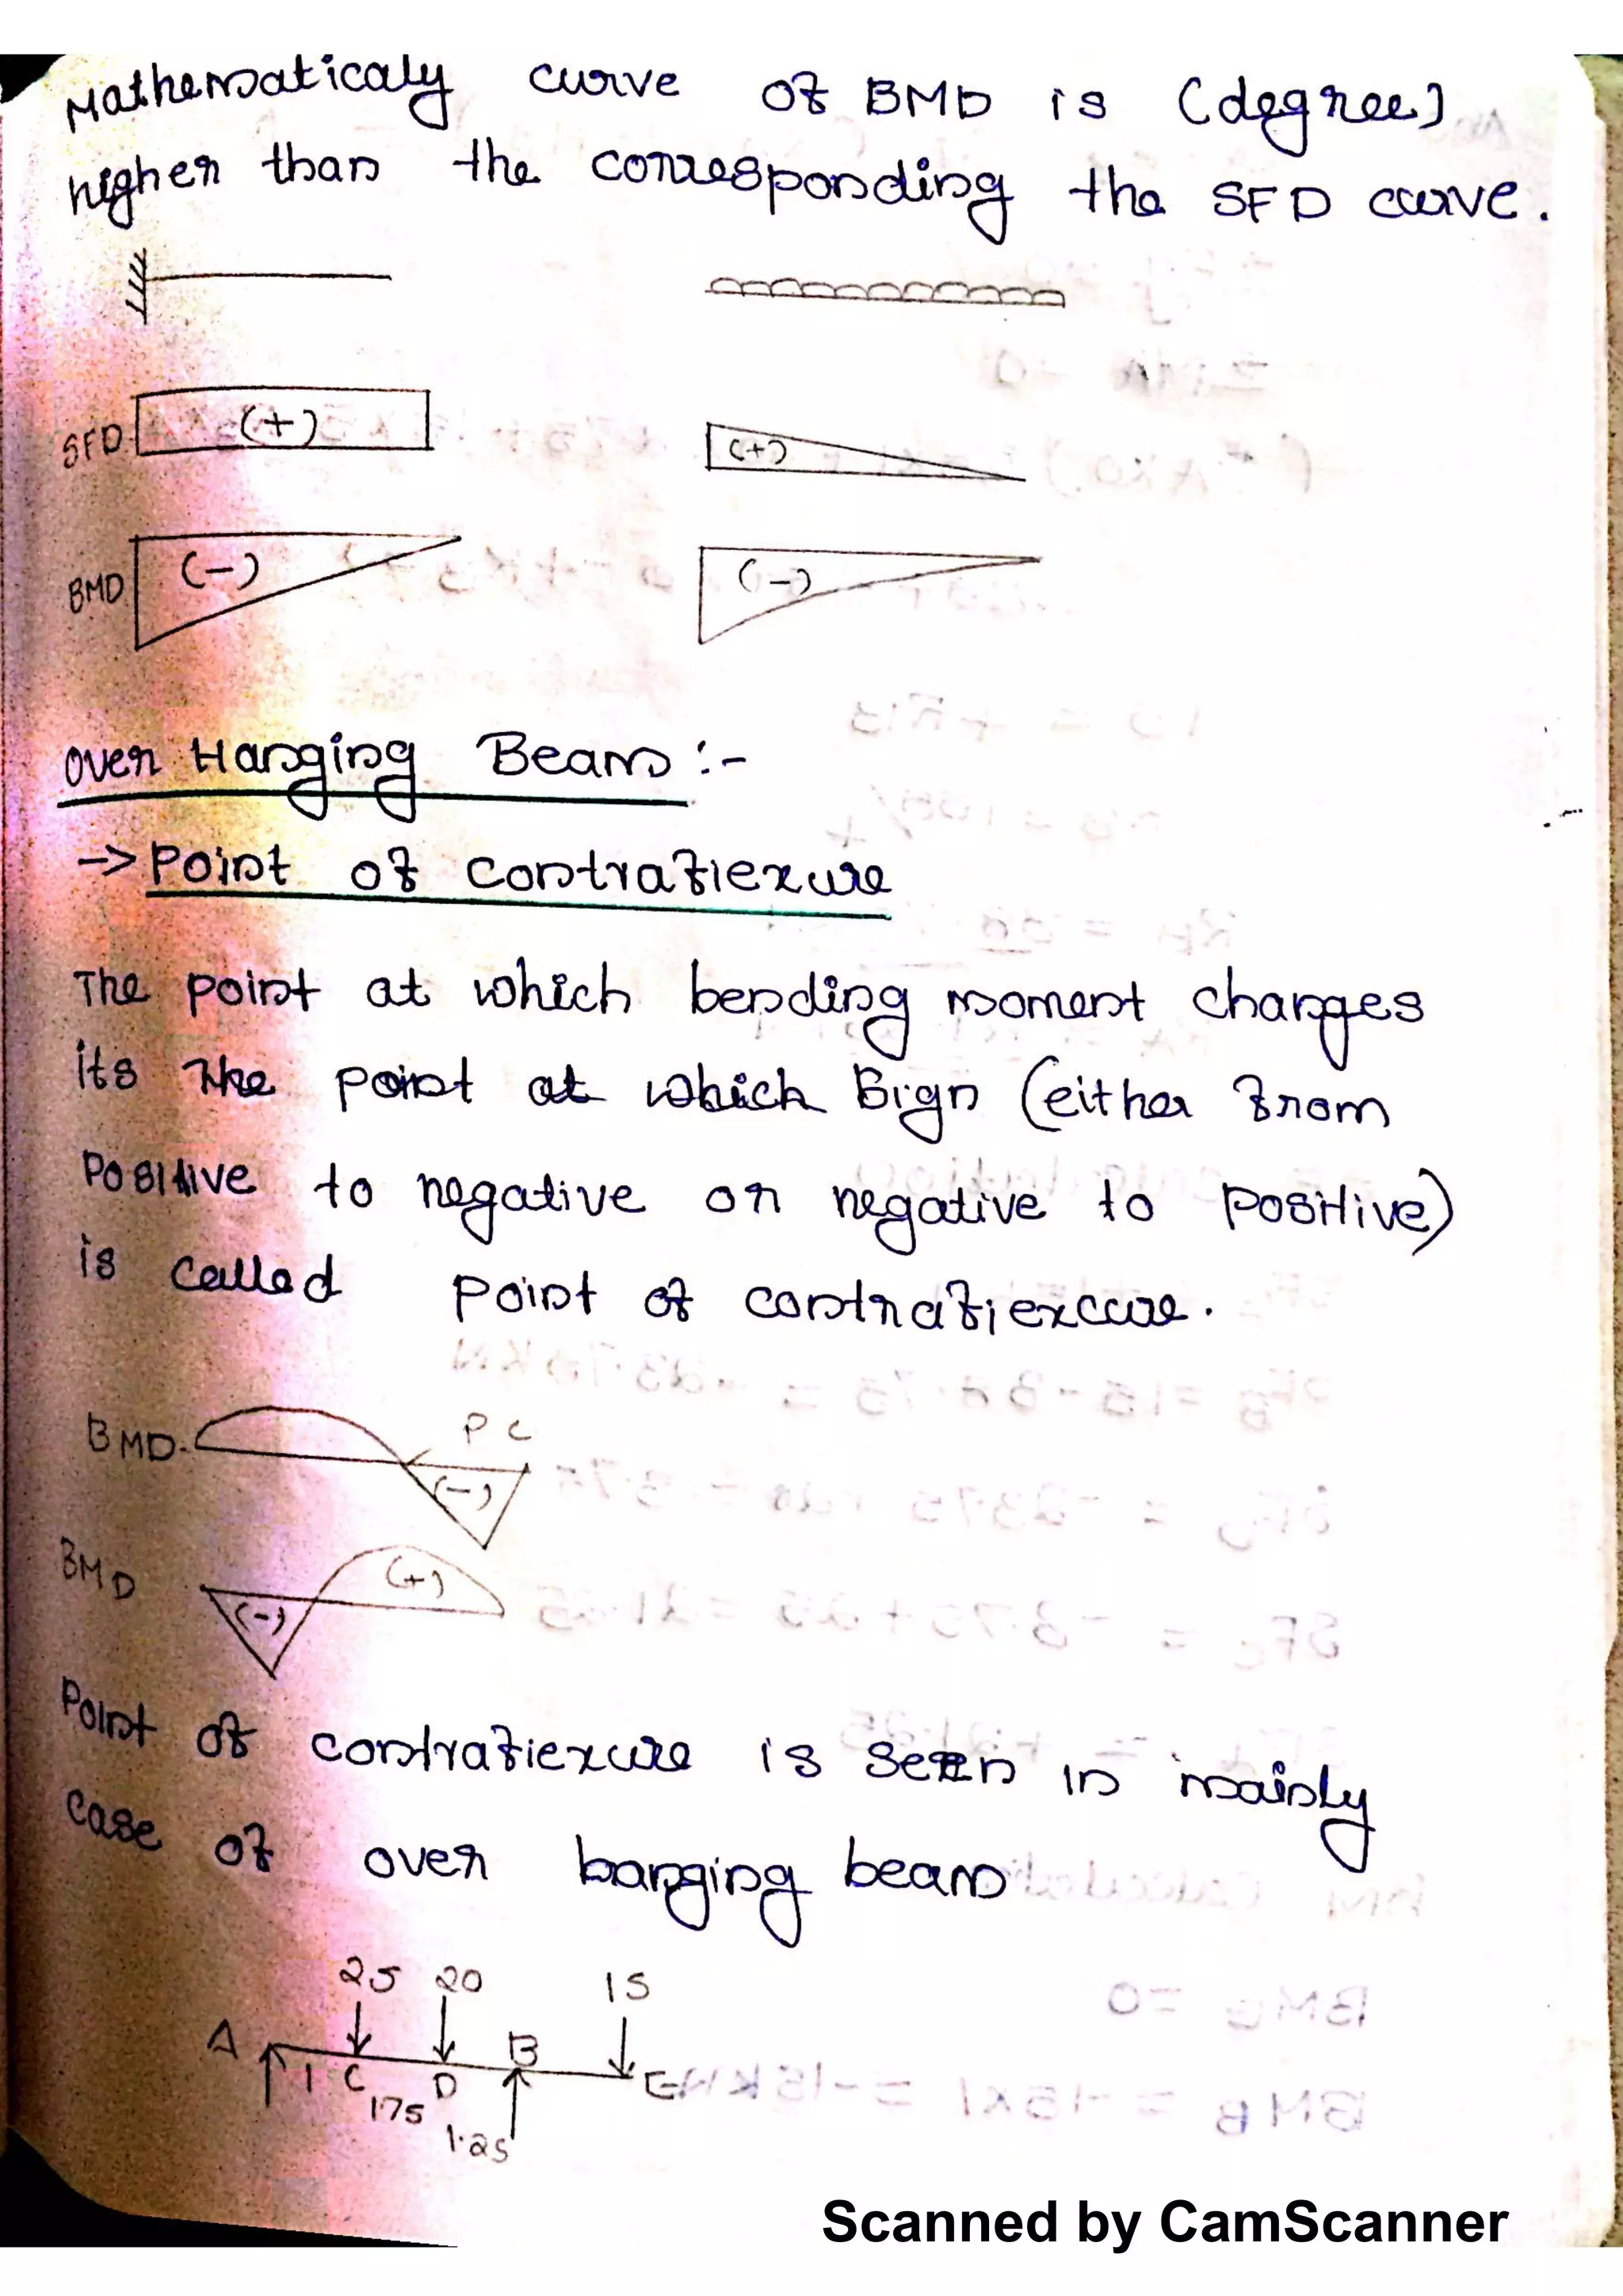 Mathematicaly curve of BMD is (degree)
higher than the corresponding the SFD curve.
SFD (+) (+)
BMD (-) (-)
Over Hanging Beam :-
-> Point of Contraflexure
The point at which bending moment changes
its the point at which sign (either from
Positive to negative or negative to positive)
is called point of contraflexure.
BMD P C
(-)
BMD (+)
(-)
Point of contraflexure is seen in mainly
case of over hanging beam
25 20 15
A B
1 C D E
1.75
1.25
Scanned by CamScanner